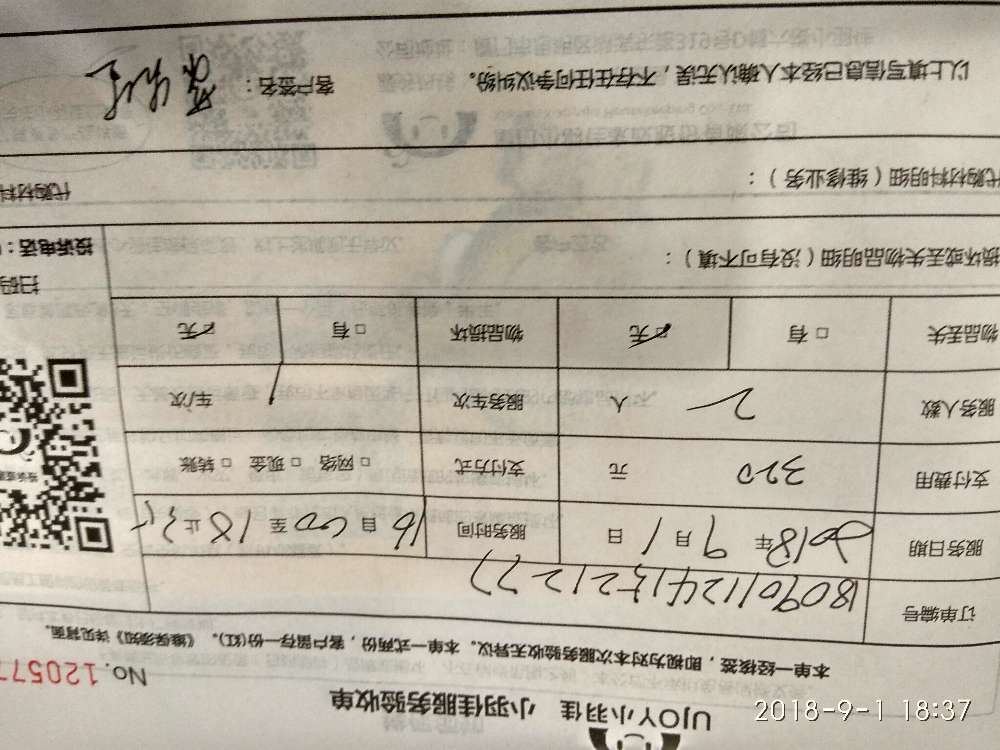 UJOY小羽佳 小羽佳服务验收单
No. 12057
本单一经核签，即视为对本次服务验收无异议。本单一式两份，客户留存一份(红)。《赔保须知》详见背面。
订单编号
服务日期 2018年9月1日 服务时间 16自00至18止
支付费用 320 元 支付方式 □网络 □现金 □转账
服务人数 2 人 服务车次 1 车/次
物品丢失 □有 □无 物品损坏 □有 □无
损坏或丢失物品明细（没有可不填）：
扫码
投诉电话：
代购材料明细（维修业务）：
代购材料
以上填写信息已经本人确认无误，不存在任何争议纠纷。 客户签名：
2018-9-1 18:37